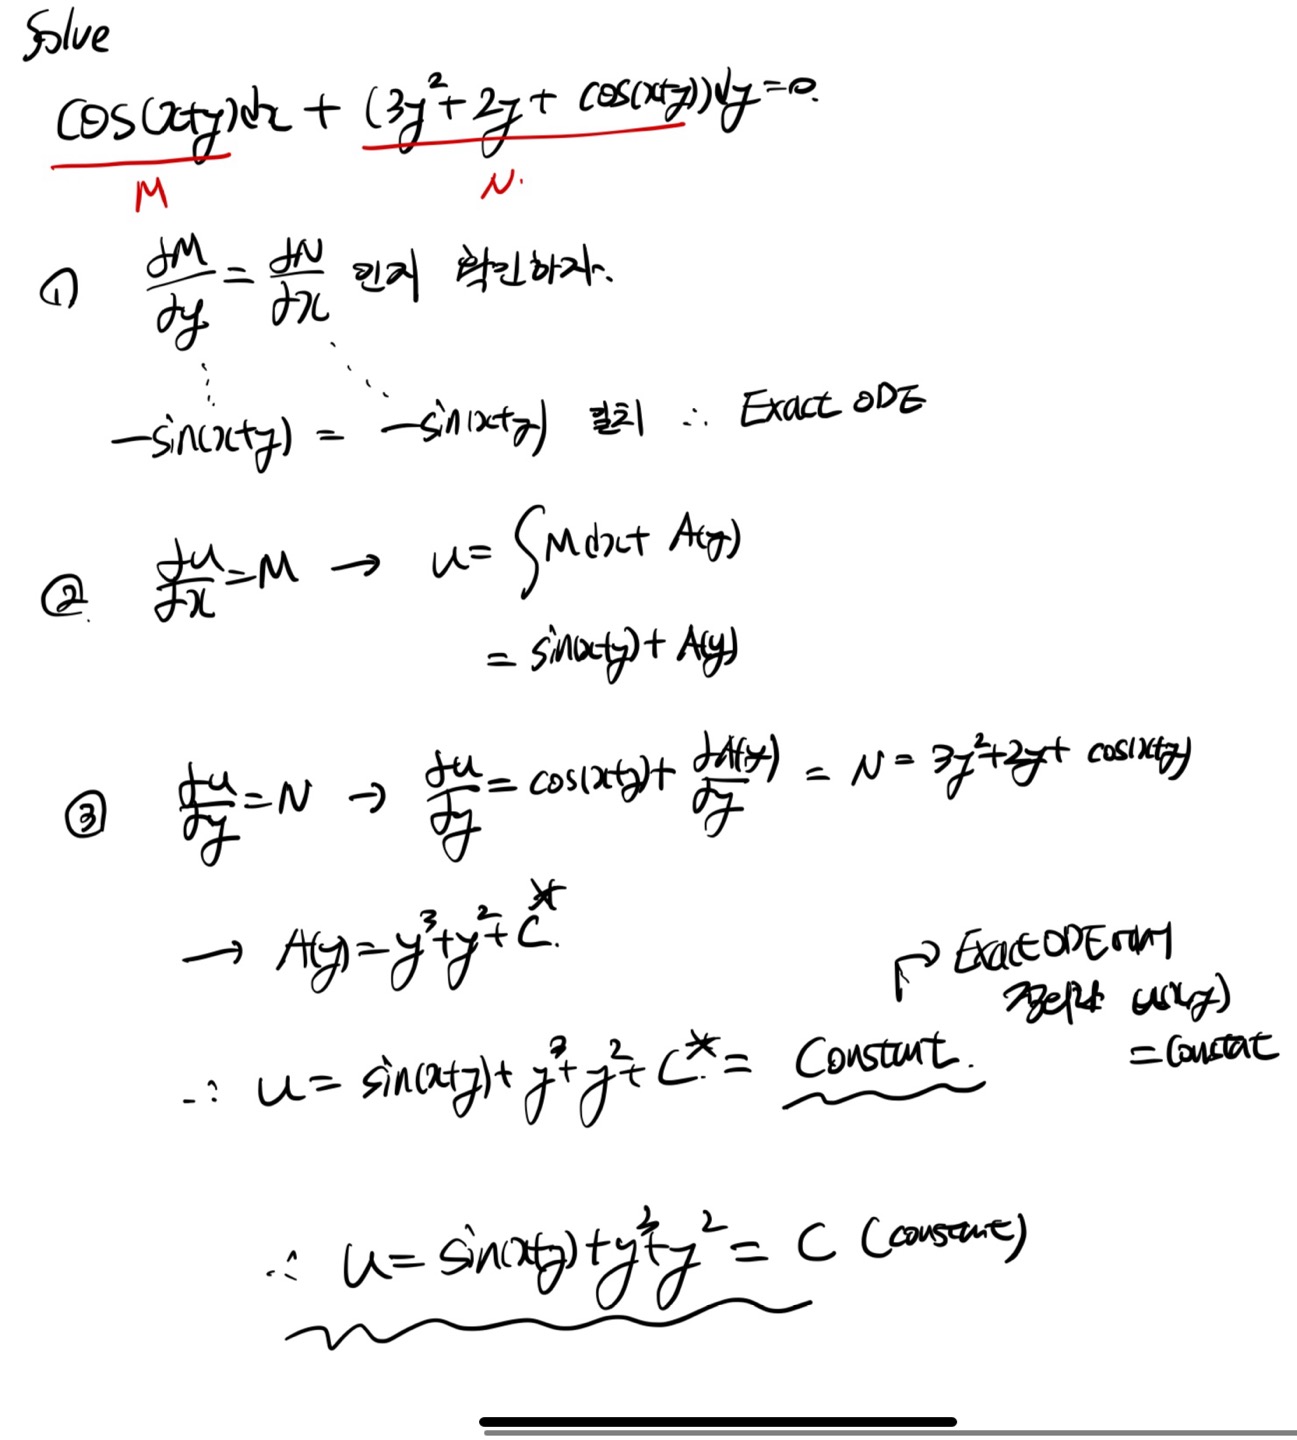 Solve
cos(x+y)dx + (3y²+2y+ cos(x+y))dy=0.
M N.
① ∂M/∂y = ∂N/∂x 인지 확인하자.
-sin(x+y) = -sin(x+y) 일치 ∴ Exact ODE
② ∂u/∂x=M → u= ∫Mdx+ A(y)
= sin(x+y)+ A(y)
③ ∂u/∂y=N → ∂u/∂y= cos(x+y)+ ∂A(y)/∂y = N = 3y²+2y+ cos(x+y)
→ A(y)=y³+y²+C*.
↱ Exact ODE에서
u(x,y)
=constat
∴ u= sin(x+y)+ y³+y²+ C*.= Constant.
∴ u= sin(x+y)+y³+y²= C (constant)